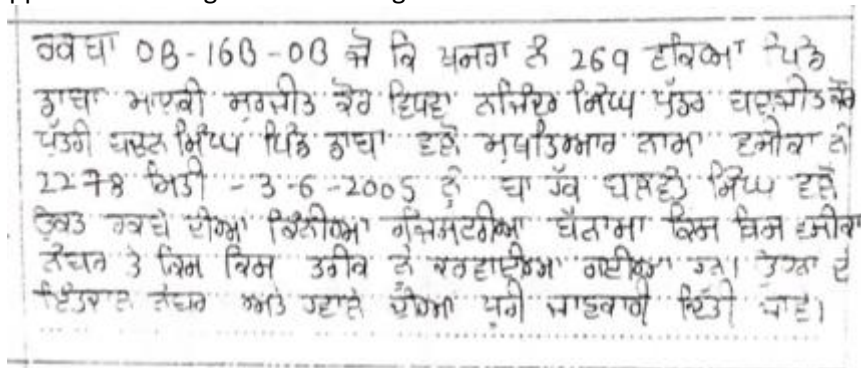 ਰਕਬਾ 0B-16B-0B ਜੋ ਕਿ ਖਸਰਾ ਨੰ 269 ਵਾਕਿਆ ਪਿੰਡ
ਢਾਬਾ ਮਾਲਕੀ ਸੁਰਜੀਤ ਕੌਰ ਵਿਧਵਾ ਨਜਿੰਦਰ ਸਿੰਘ ਪੁੱਤਰ ਬਚਨ ਕੌਰ
ਪੁੱਤਰੀ ਬਚਨ ਸਿੰਘ ਪਿੰਡ ਢਾਬਾ ਵਲੋਂ ਮੁਖਤਿਆਰ ਨਾਮਾ ਵਸੀਕਾ ਨੰ
2278 ਮਿਤੀ - 3-6-2005 ਨੂੰ ਬਾ ਹੱਕ ਬਲਵੰਤ ਸਿੰਘ ਵਲੋਂ
ਉਕਤ ਰਕਬੇ ਦੀਆਂ ਕਿੰਨੀਆਂ ਰਜਿਸਟਰੀਆਂ ਬੈਨਾਮਾ ਕਿਸ ਕਿਸ ਵਸੀਕਾ
ਨੰਬਰ ਤੇ ਕਿਸ ਕਿਸ ਤਰੀਕ ਨੂੰ ਕਰਵਾਈਆਂ ਗਈਆਂ ਹਨ। ਉਹਨਾਂ ਦੇ
ਇੰਤਕਾਲ ਨੰਬਰ ਅਤੇ ਹਵਾਲੇ ਦੀਆਂ ਪੂਰੀ ਜਾਣਕਾਰੀ ਦਿੱਤੀ ਜਾਵੇ।